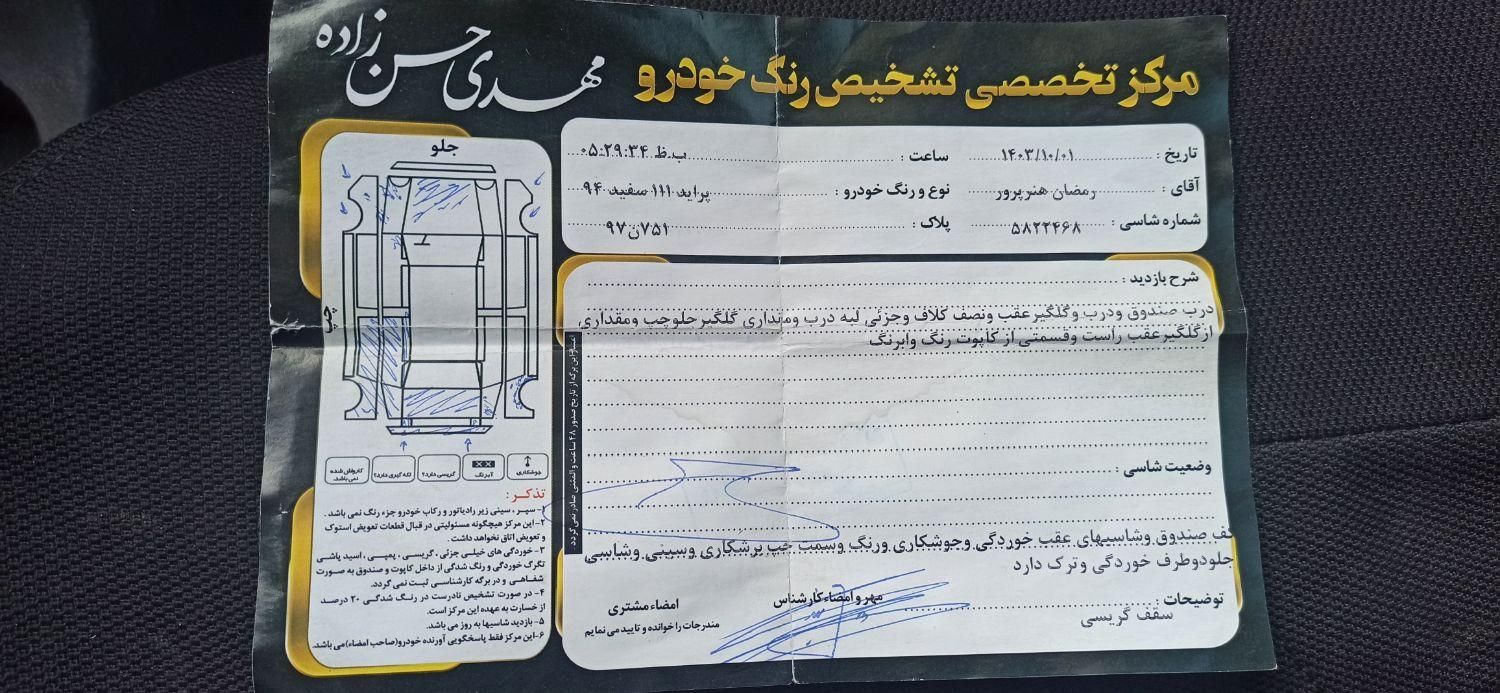 مرکز تخصصی تشخیص رنگ خودرو
مهدی حسن زاده
تاریخ : ۱۴۰۳/۱۰/۰۱ ساعت : ۰۵:۲۹:۳۴ ب.ظ
آقای : رمضان هنرپرور نوع و رنگ خودرو : پراید ۱۱۱ سفید ۹۴
شماره شاسی : ۵۸۲۲۴۶۸ پلاک : ۷۵۱ن۹۷
شرح بازدید :
درب صندوق ودرب وگلگیرعقب ونصف کلاف وجزئی لبه درب ومقداری گلگیرجلوچپ ومقداری
ازگلگیرعقب راست وقسمتی از کاپوت رنگ وابرنگ
وضعیت شاسی :
کف صندوق وشاسیهای عقب خوردگی وجوشکاری ورنگ وسمت چپ پرشکاری وسینی وشاسی
جلودوطرف خوردگی وترک دارد
توضیحات :
سقف گریسی
مهر و امضاء کارشناس
امضاء مشتری
مندرجات را خوانده و تایید می نمایم
اعتبار این برگه از تاریخ صدور ۴۸ ساعت و المثنی صادر نمی گردد
جلو
چپ
جوشکاری
آبرنگ
گریسی دارد؟
لکه گیری دارد؟
کارواش شده نمی باشد.
تذکر :
۱- سپر ، سینی زیر رادیاتور و رکاب خودرو جزء رنگ نمی باشد .
۲- این مرکز هیچگونه مسئولیتی در قبال قطعات تعویض استوک
و تعویض اتاق نخواهد داشت .
۳- خوردگی های خیلی جزئی ، گریسی ، پمپی ، اسید پاشی
تگرگ خوردگی و رنگ شدگی از داخل کاپوت و صندوق به صورت
شفاهی و در برگه کارشناسی ثبت نمی گردد.
۴- در صورت تشخیص نادرست در رنگ شدگی ۲۰ درصد
از خسارت به عهده این مرکز است.
۵- بازدید شاسیها به روز می باشد.
۶- این مرکز فقط پاسخگویی آورنده خودرو(صاحب امضاء)می باشد.